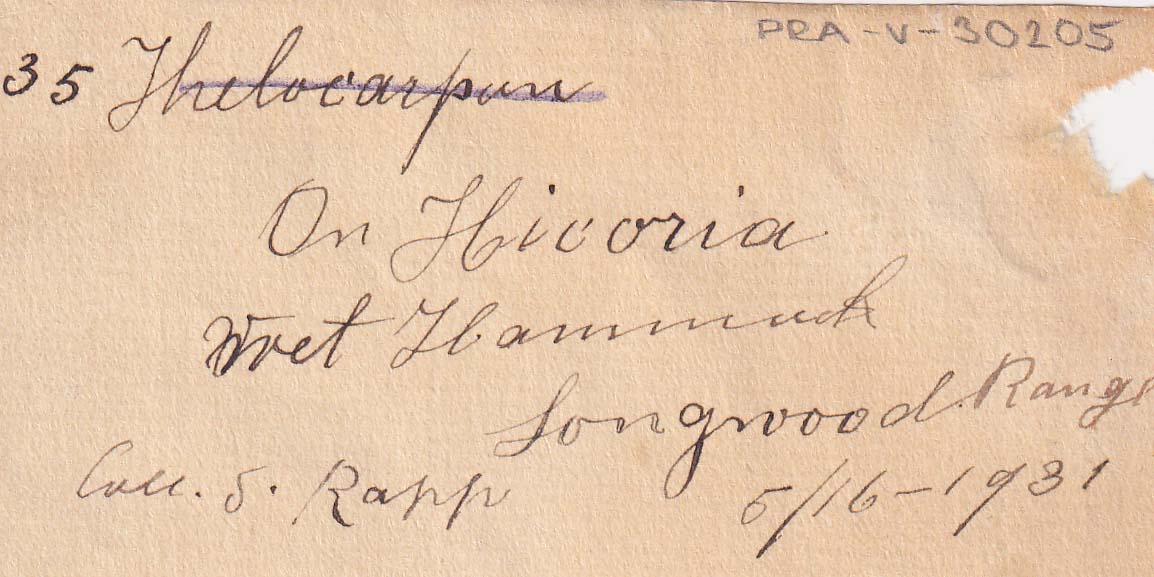 PRA-V-30205
35 Thelocarpon
On Hicoria
Wet Hammock
Longwood Range
Coll. S. Rapp
5/16-1931